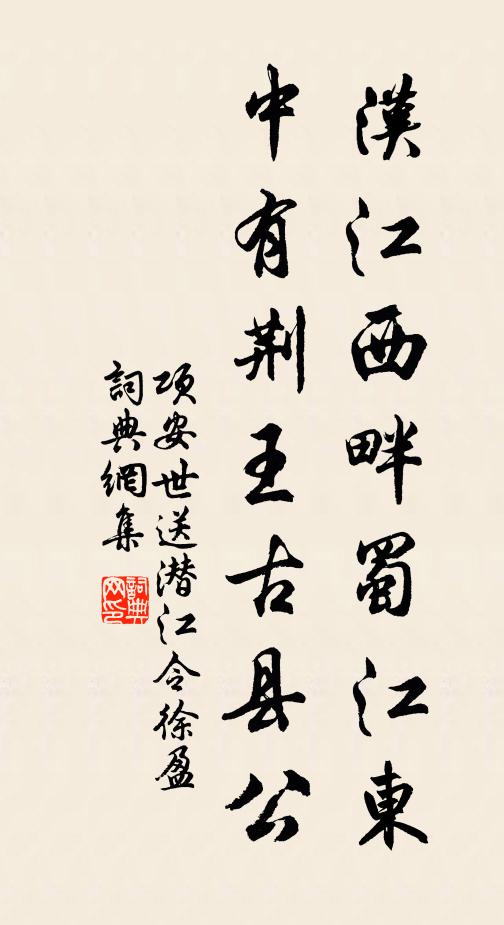 漢江西畔蜀江東
中有荆王古县公
项安世送潜江令徐盈
詞典網集
詞典
网印